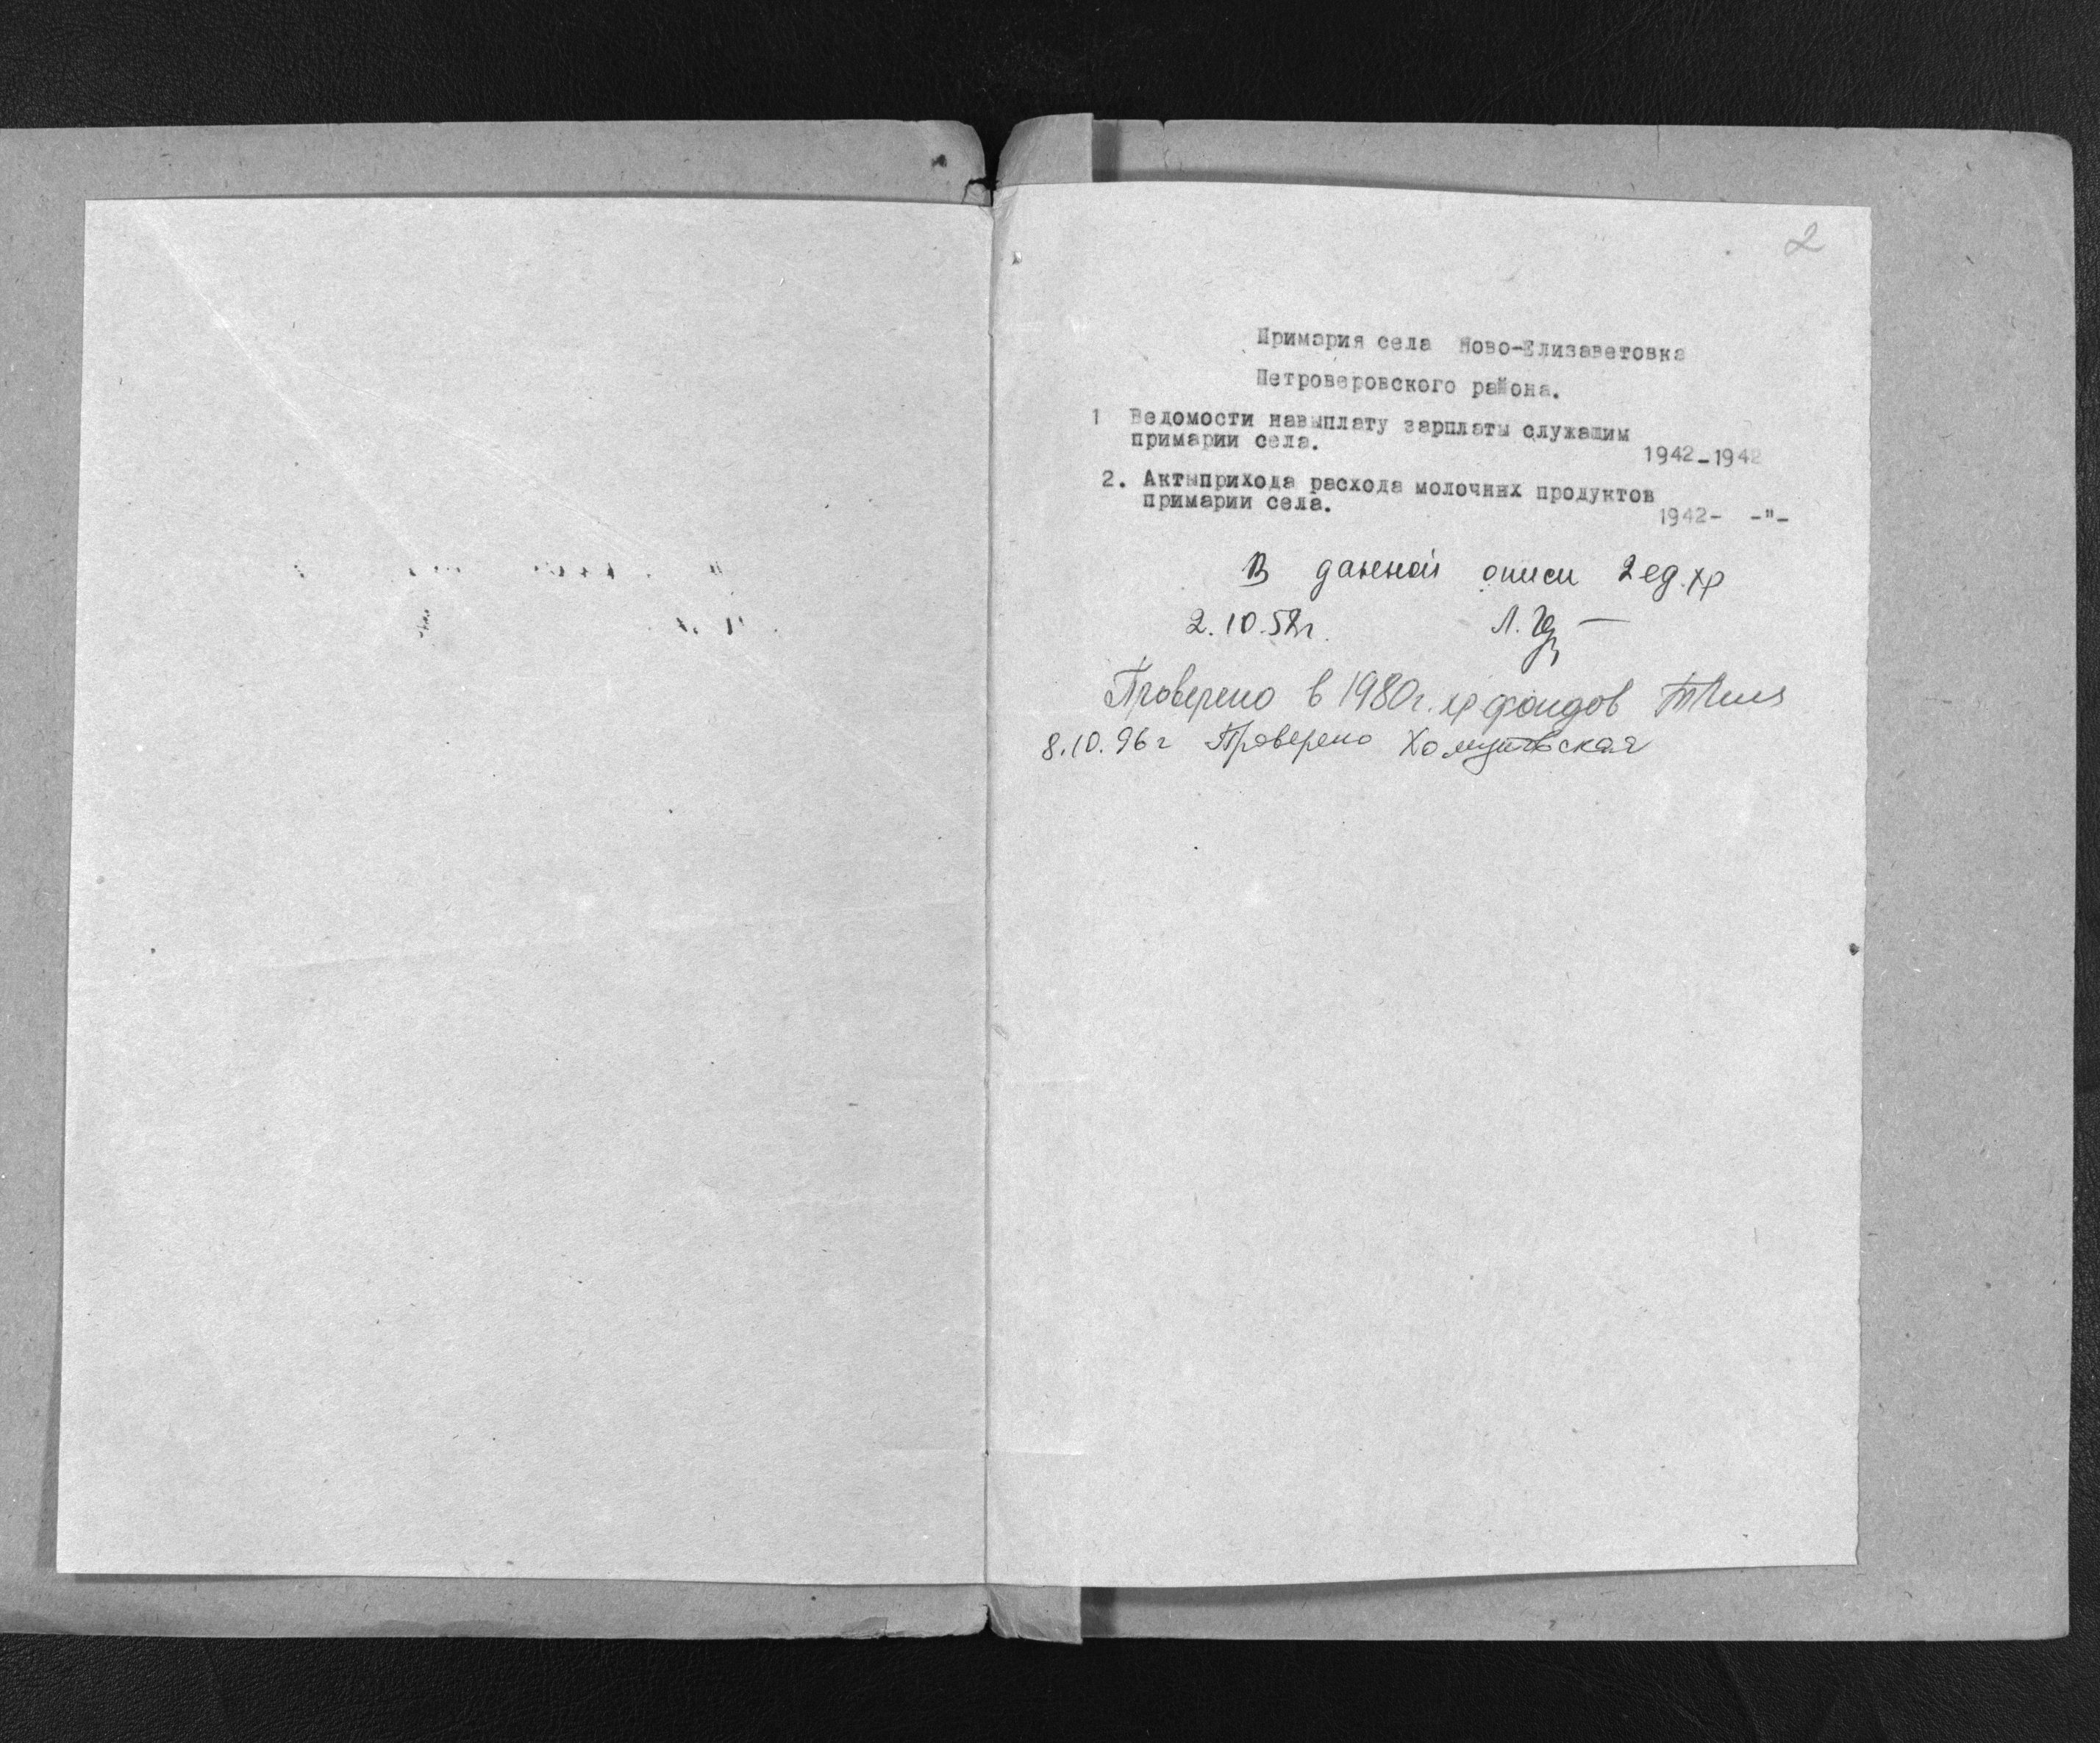 2
Примария села Ново-Елизаветовка
Петроверовского района.
1 Ведомости навыплату зарплаты служащим
примарии села.
1942-1942
2. Актыприхода расхода молочных продуктов
примарии села.
1942- -"-
В данной описи 2 ед. хр
2.10.58г. Л.
Проверено в 1980г. хр фондов
8.10.96г Проверено Хомутовская